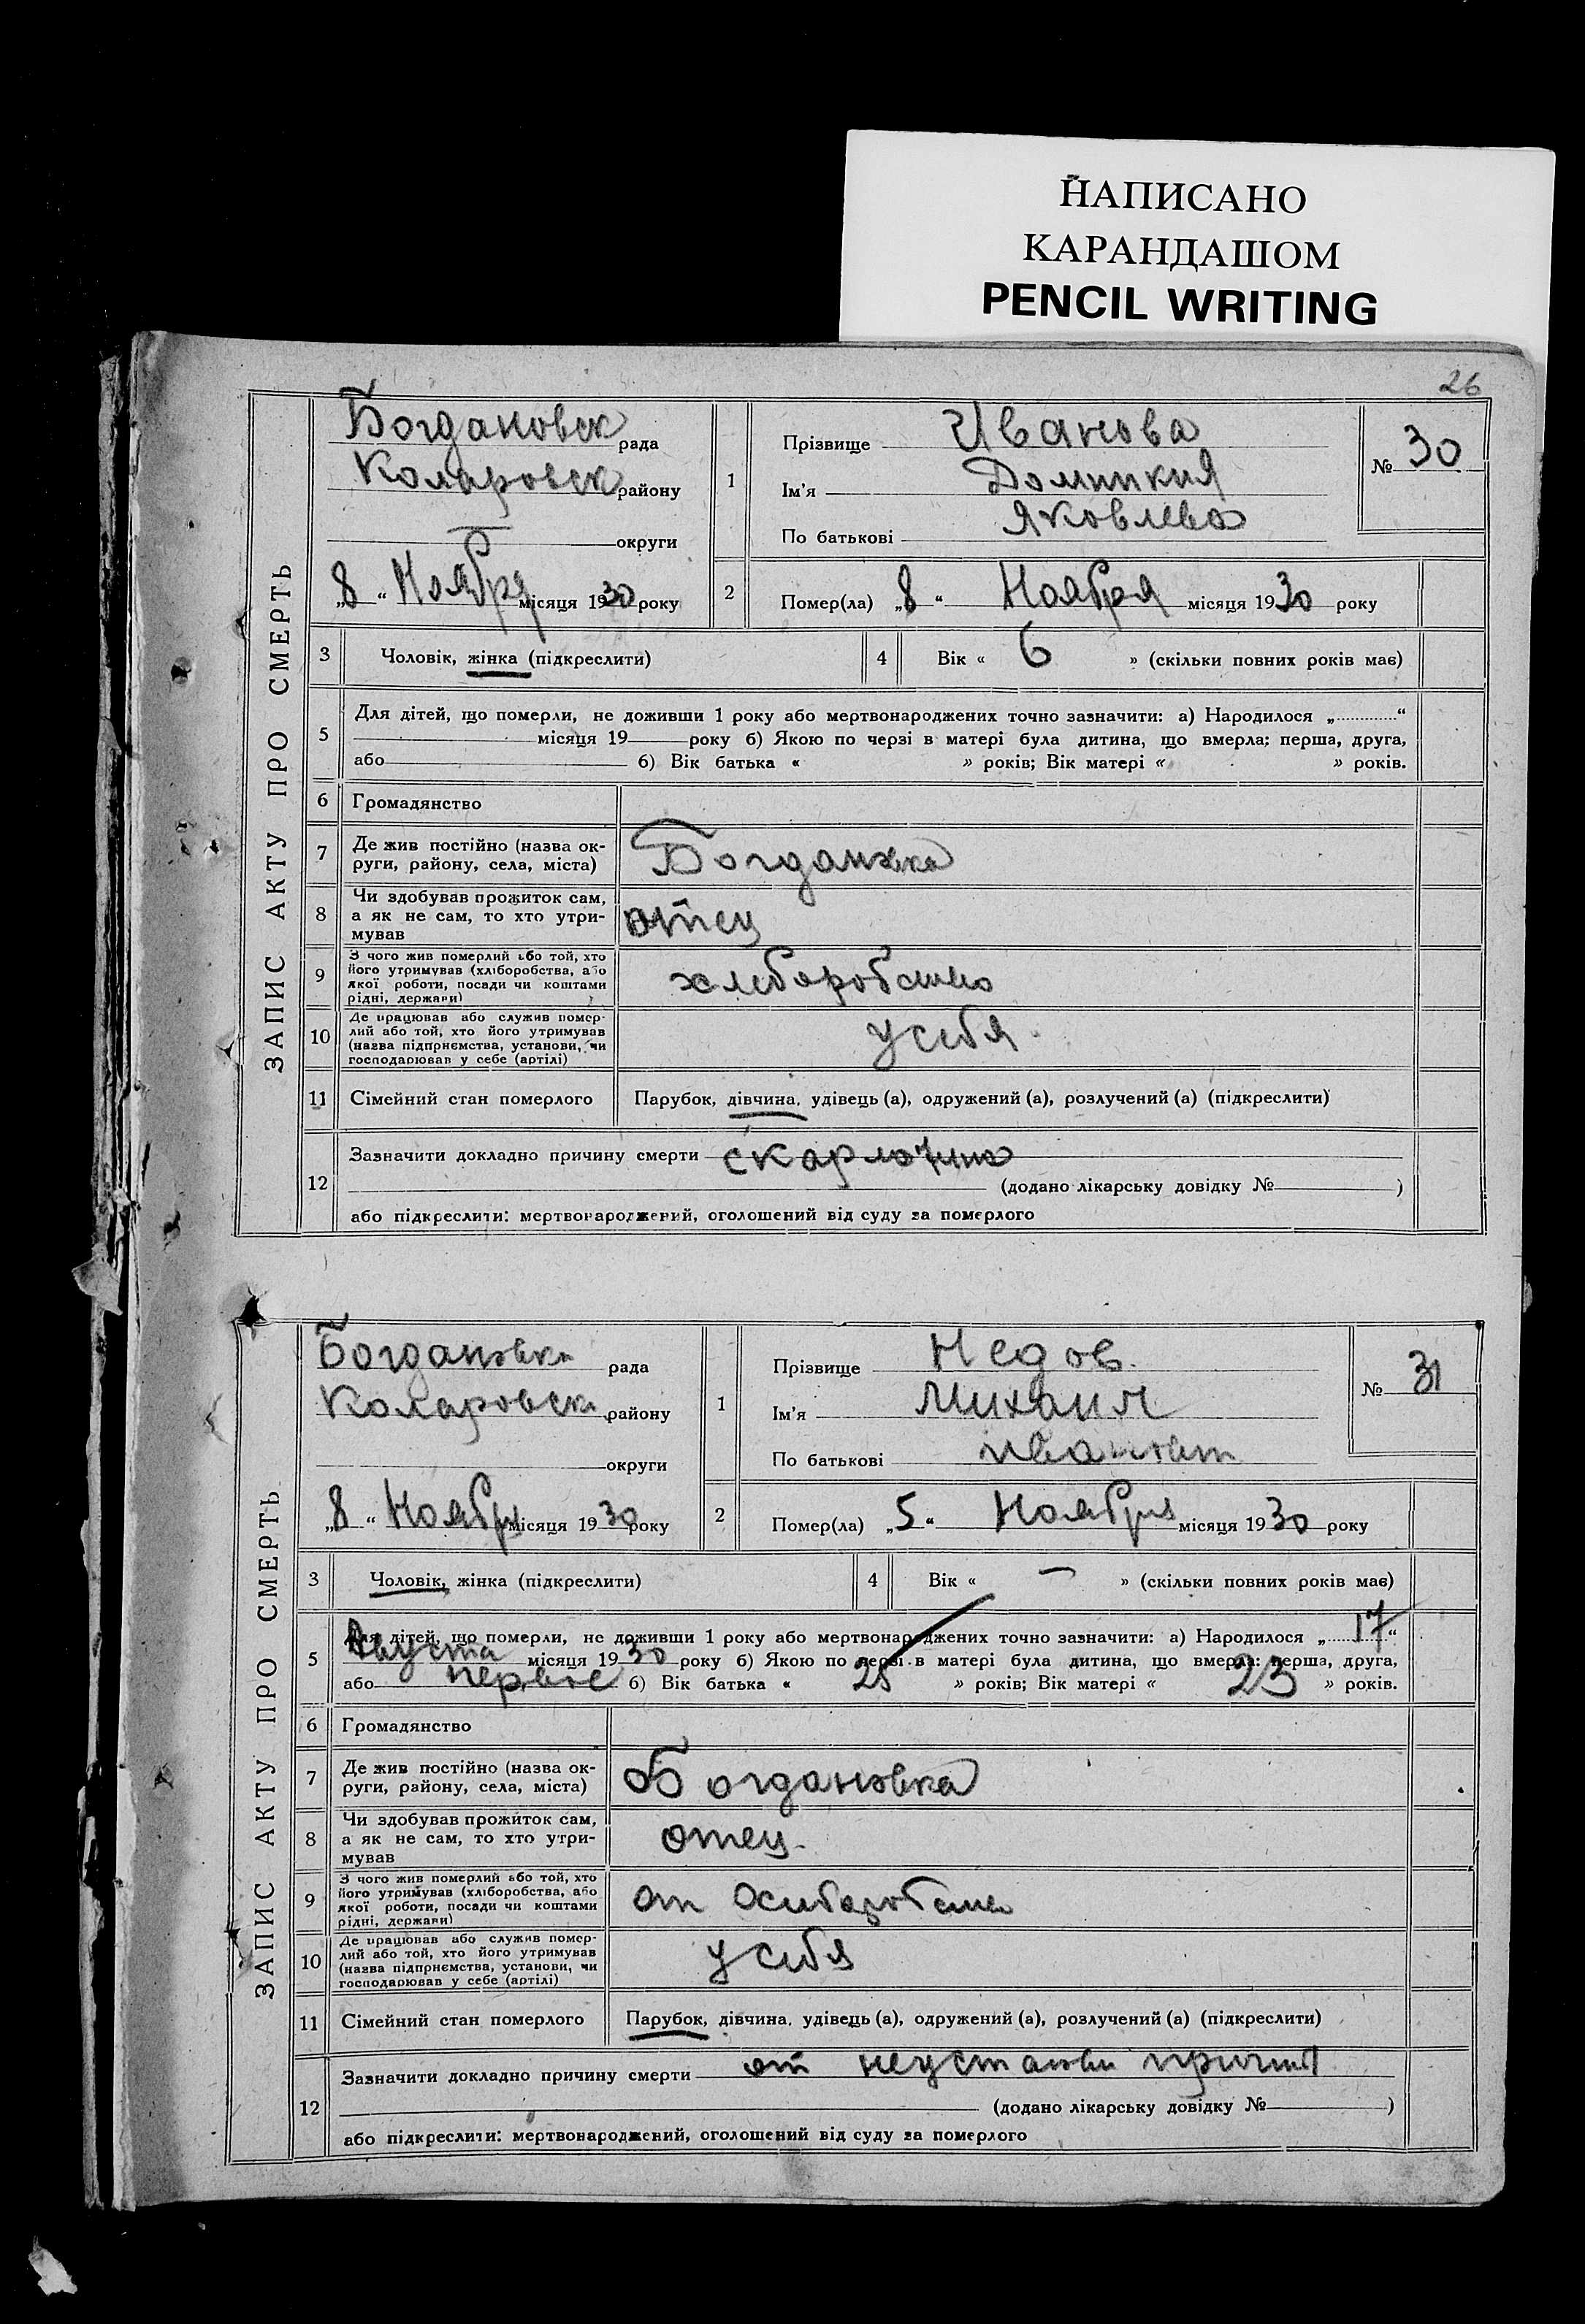 НАПИСАНО
КАРАНДАШОМ
PENCIL WRITING
26
ЗАПИС АКТУ ПРО СМЕРТЬ
Богдановск рада
Коларовск району
округи
„8“ Ноября місяця 1930 року
1 Прізвище Иванова
Ім’я Домникия
По батькові Яковлева
№ 30
2 Помер(ла) „8“ Ноября місяця 1930 року
3 Чоловік, жінка (підкреслити)
4 Вік « 6 » (скільки повних років має)
5 Для дітей, що померли, не доживши 1 року або мертвонароджених точно зазначити: а) Народилося „ “
місяця 19 року б) Якою по черзі в матері була дитина, що вмерла: перша, друга,
або б) Вік батька « » років; Вік матері « » років.
6 Громадянство
7 Де жив постійно (назва ок-
руги, району, села, міста) Богдановка
8 Чи здобував прожиток сам,
а як не сам, то хто утри-
мував отец
9 З чого жив померлий або той, хто
його утримував (хліборобства, або
якої роботи, посади чи коштами
рідні, держави) хлеборобство
10 Де працював або служив помер-
лий або той, хто його утримував
(назва підприємства, установи, чи
господарював у себе (артілі) у себя
11 Сімейний стан померлого Парубок, дівчина, удівець (а), одружений (а), розлучений (а) (підкреслити)
12 Зазначити докладно причину смерти скарлатина
(додано лікарську довідку № )
або підкреслити: мертвонароджений, оголошений від суду за померлого
ЗАПИС АКТУ ПРО СМЕРТЬ
Богдановка рада
Коларовск району
округи
„8“ Ноября місяця 1930 року
1 Прізвище Недов
Ім’я Михаил
По батькові
№ 31
2 Помер(ла) „5“ Ноября місяця 1930 року
3 Чоловік, жінка (підкреслити)
4 Вік « – » (скільки повних років має)
5 Для дітей, що померли, не доживши 1 року або мертвонароджених точно зазначити: а) Народилося „17“
Августа місяця 1930 року б) Якою по черзі в матері була дитина, що вмерла: перша, друга,
або первое б) Вік батька « 25 » років; Вік матері « 23 » років.
6 Громадянство
7 Де жив постійно (назва ок-
руги, району, села, міста) Богдановка
8 Чи здобував прожиток сам,
а як не сам, то хто утри-
мував отец
9 З чого жив померлий або той, хто
його утримував (хліборобства, або
якої роботи, посади чи коштами
рідні, держави) от
10 Де працював або служив помер-
лий або той, хто його утримував
(назва підприємства, установи, чи
господарював у себе (артілі) у себя
11 Сімейний стан померлого Парубок, дівчина, удівець (а), одружений (а), розлучений (а) (підкреслити)
12 Зазначити докладно причину смерти от
(додано лікарську довідку № )
або підкреслити: мертвонароджений, оголошений від суду за померлого